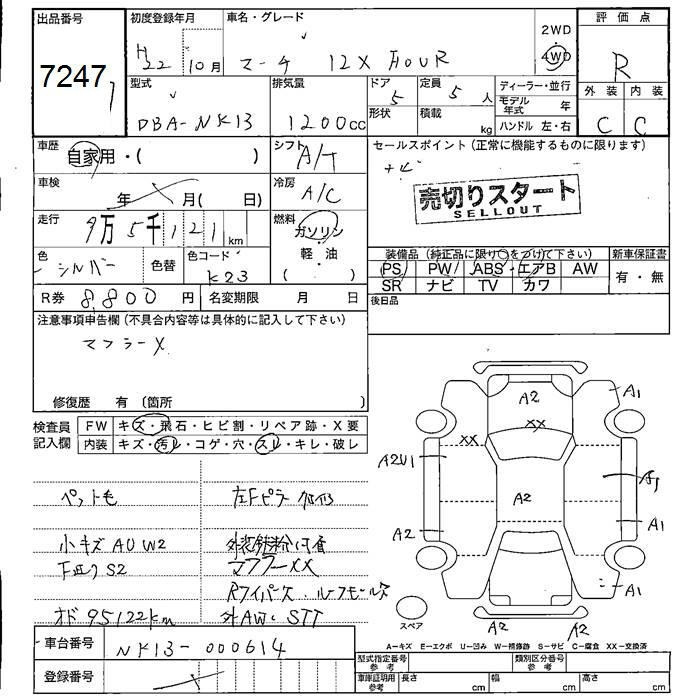 出品番号
7247
初度登録年月
H22 10月
車名・グレード
マーチ 12X FOUR
2WD
4WD
評価点
R
外装 内装
C C
型式
DBA-NK13
排気量
1200cc
ドア
5
形状
定員
5人
積載
kg
ディーラー・並行
モデル年式 年
ハンドル 左・右
車歴
自家用・( )
シフト
A/T
車検
年 月( 日)
冷房
A/C
走行
9万5千121km
燃料
ガソリン
軽・油
( )
色
シルバー
色替
色コード
K23
R券 8,800円
名変期限 月 日
セールスポイント(正常に機能するものに限ります)
ナビ
売切りスタート
SELLOUT
装備品(純正品に限り○をつけて下さい)
新車保証書
PS PW ABS エアB AW
SR ナビ TV カワ
有・無
後日品
注意事項申告欄(不具合内容等は具体的に記入して下さい)
マフラーX
修復歴 有(箇所 )
検査員記入欄
FW キズ・飛石・ヒビ割・リペア跡・X要
内装 キズ・汚レ・コゲ・穴・スレ・キレ・破レ
ペット毛
小キズAUW2
下廻りS2
オド95122km
左Fピラー修修
外装鉄粉付着
マフラーXX
Rワイパー欠、ルーフモール欠
外AW、STT
A2
A1
XX
XX
A2U1
A2
A1
A2
A1
A1
A2
A2
スペア
A-キズ E-エクボ U-凹み W-補修跡 S-サビ C-腐食 XX-交換済
車台番号
NK13-000614
登録番号
型式指定番号
参考
類別区分番号
参考
車庫証明用
参考
長さ cm
幅 cm
高さ cm